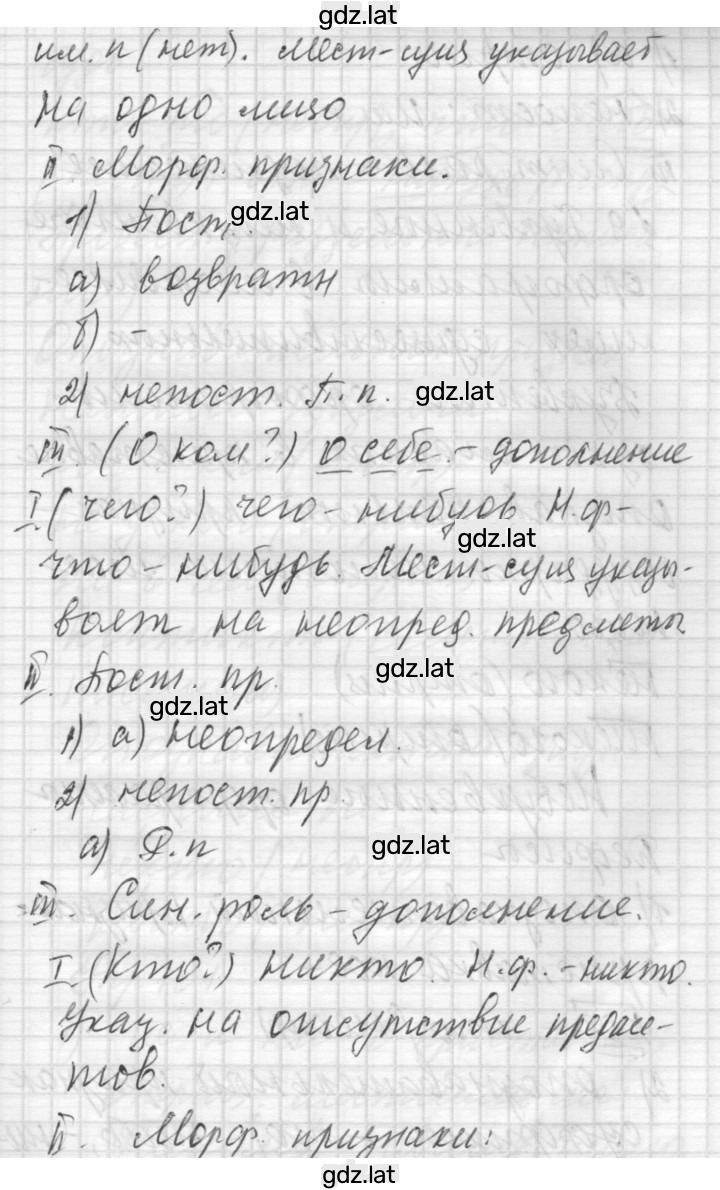 gdz.lat
им. п (нет). Мест-сущ указывает
на одно лицо
II. Морф. признаки.
1) Пост. gdz.lat
а) возвратн
б) -
2) непост. П. п. gdz.lat
III. (О ком?) о себе - дополнение
I. (чего?) чего-нибудь Н. ф-
gdz.lat
что-нибудь. Мест-сущ указы-
вает на неопред. предметы
II. Пост. пр. gdz.lat
gdz.lat
1) а) неопредел.
2) непост. пр.
а) Р. п gdz.lat
III. Син. роль - дополнение.
I (Кто?) никто. Н. ф. - никто.
Указ. на отсутствие предме-
тов.
II. Морф. признаки:
gdz.lat